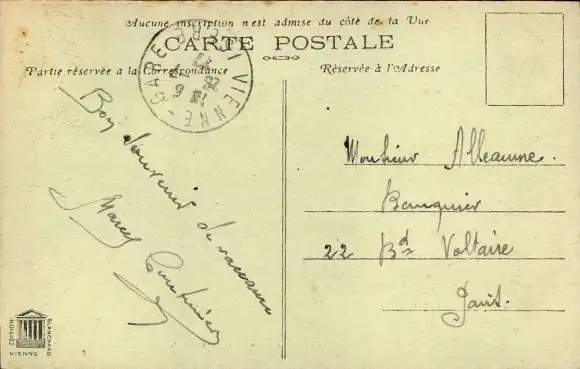 Aucune inscription n'est admise du côté de la Vue
CARTE POSTALE
Partie réservée a la Correspondance
Réservée à l'Adresse
VIENNE - GARE
ISERE
Bon Souvenir de vacance
Marcel
Monsieur Alleaume.
Banquier
22 Bd Voltaire
Paris.
EDITION
BLANCHARD
VIENNE